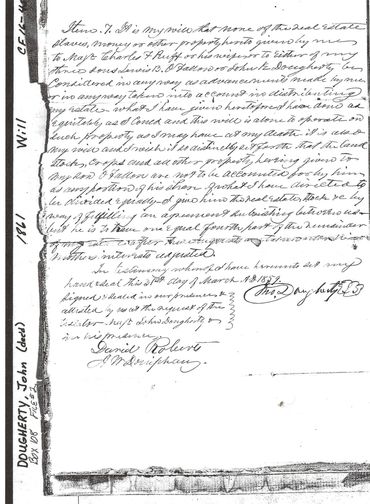 Item 7. It is my will that none of the real estate
slaves, money or other property heretofore given by me
to Majr Charles F Ruff or his wife or to either of my
three sons Lewis B. O'Fallon or John K Dougherty be
considered in any way as advancements made by me
or in any way taken into account in distributing
my estate. What I have given heretofore I have done as
equitably as I could and this will is alone to operate on
such property as I may have at my death. It is also
my will and I wish it so distinctly set forth that the land
stock, crops and all other property having given to
my son O'Fallon are not to be accounted for by him
as any portion of his share of what I have directed to
be divided equally. I give him the real estate, stock &c by
way of fulfilling an agreement subsisting between us
but he is to have one equal fourth part of the remainder
of my estate after the
interest adjusted.
In testimony whereof I have hereunto set my
hand & seal this 31st day of March A.D. 1859.
Signed & sealed in our presence &
attested by us at the request of the
testator Majr John Dougherty &
in his presence
Jno Dougherty
David Roberts
J. W. Doniphan
DOUGHERTY, John (decd) 1861 Will
Box 108 File #2